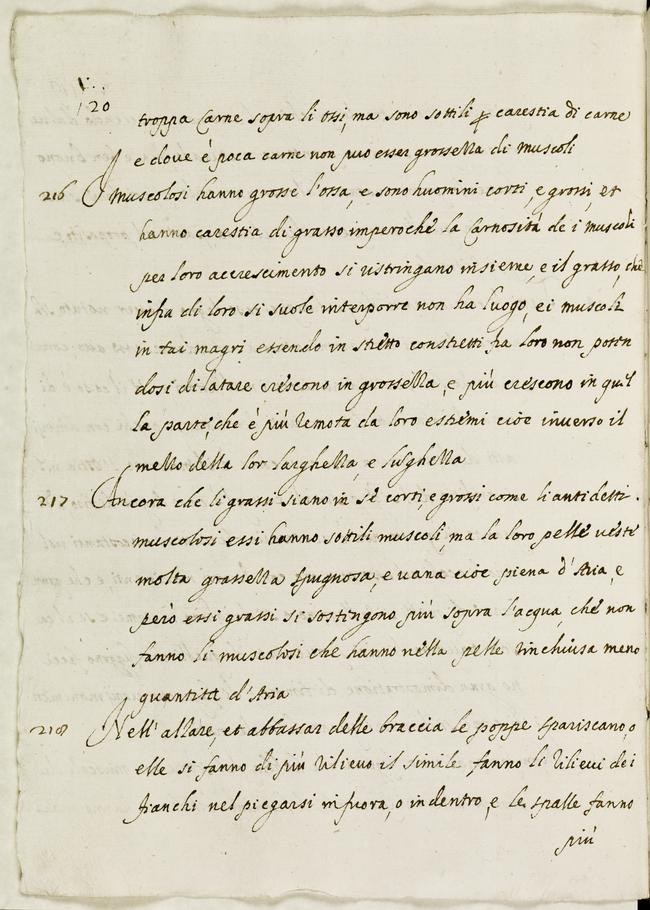 120
troppa Carne sopra li ossi, ma sono sottili p carestia di carne
e dove è poca carne non puo esser grossezza di muscoli
216 I muscolosi hanno grosse l'ossa, e sono huomini corti, e grossi, et
hanno carestia di grasso imperoche la Carnosità de i muscoli
per loro accrescimento si ristringano insieme, e il grasso, che
infra di loro si suole interporre non ha luogo, e i muscoli
in tai magri essendo in stretto constretti fra loro non poten
dosi dilatare crescono in grossezza, e più crescono in quel
la parte, che è più remota da loro estremi cioè inverso il
mezzo della lor larghezza, e lughezza
217 Ancora che li grassi siano in sè corti, e grossi come li antidetti
muscolosi essi hanno sottili muscoli, ma la loro pelle veste
molta grassezza spugnosa, e vana cioè piena d'Aria, e
però essi grassi si sostingono più sopra l'acqua, che non
fanno li muscolosi che hanno nella pelle rinchiusa meno
quantità d'Aria
218 Nell'alzare, et abbassar delle braccia le poppe spariscano, o
elle si fanno di più rilievo il simile fanno li rilievi dei
fianchi nel piegarsi in fuora, o in dentro, e le spalle fanno
più